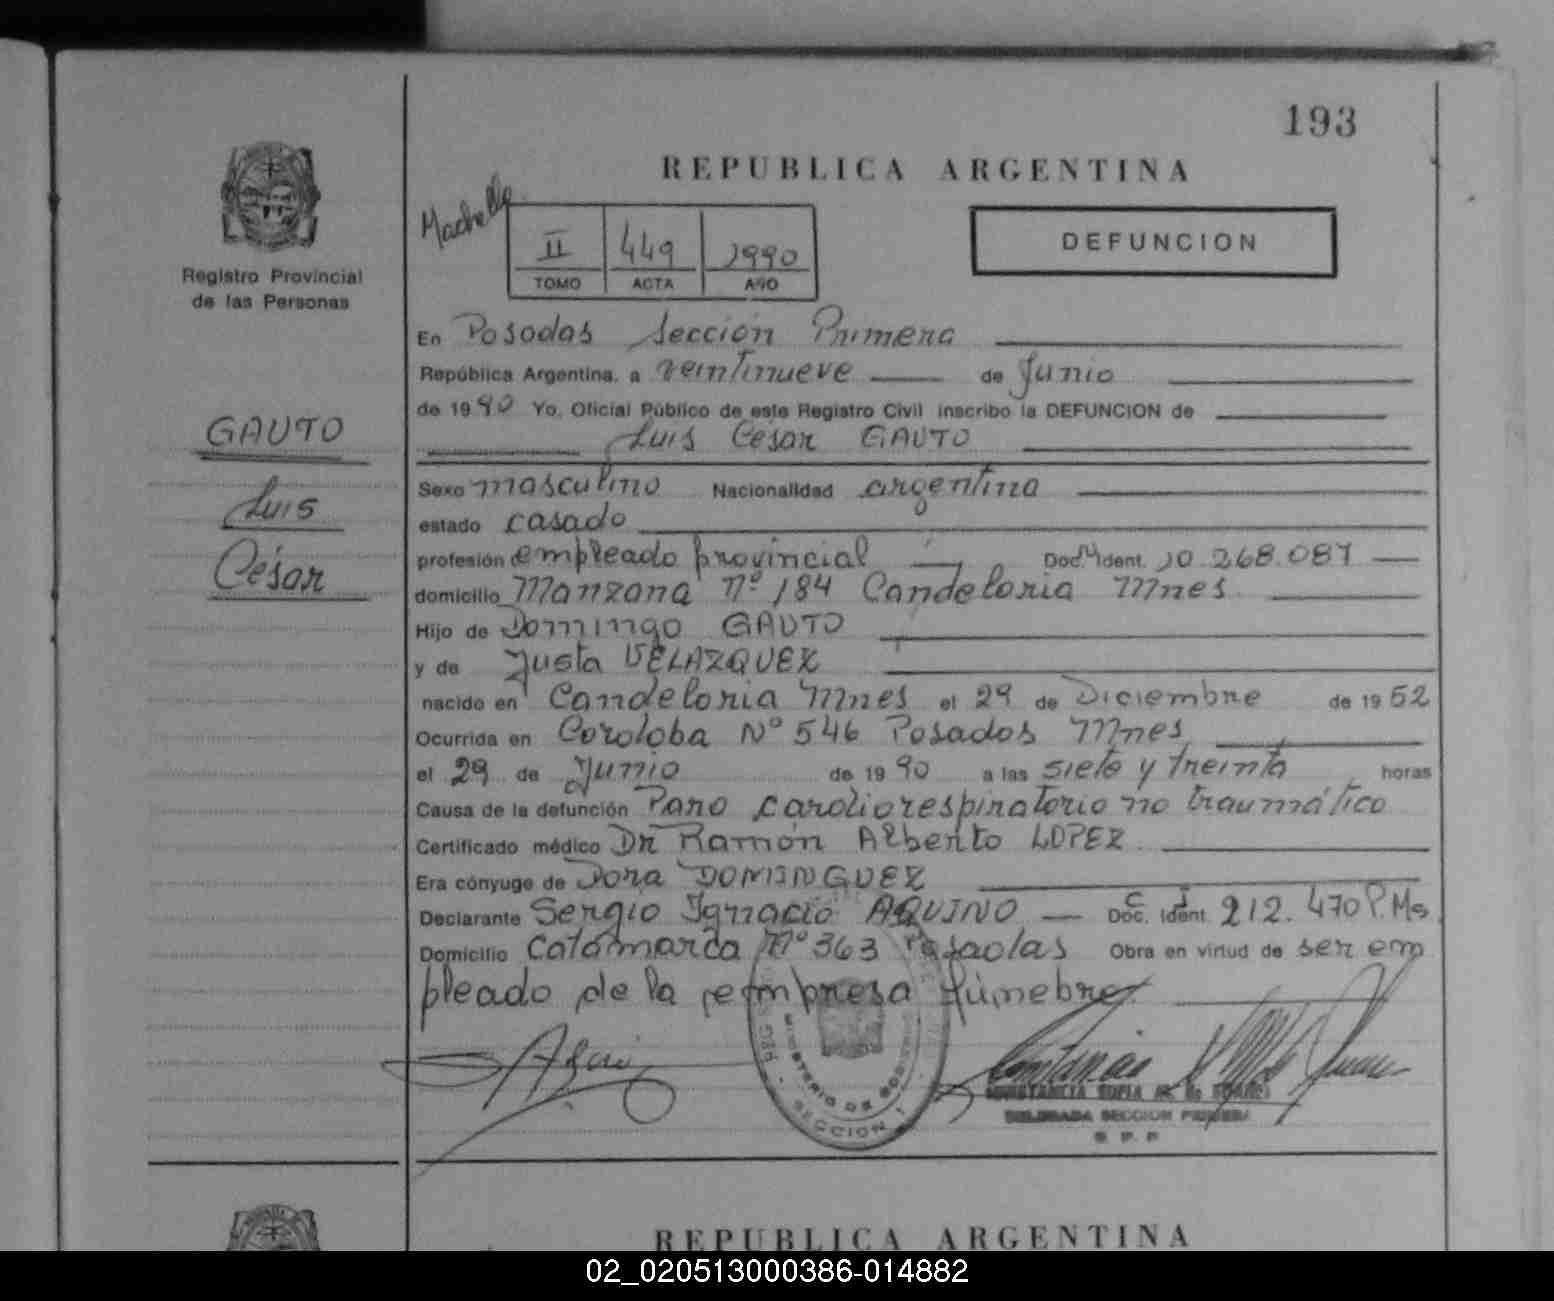 193
REPUBLICA ARGENTINA
Registro Provincial
de las Personas
II 449 1990
TOMO ACTA AÑO
DEFUNCION
En Posadas Sección Primera
República Argentina, a veintinueve de Junio
de 1990 Yo, Oficial Público de este Registro Civil inscribo la DEFUNCION de
Luis César GAUTO
GAUTO
Luis
César
Sexo masculino Nacionalidad argentina
estado casado
profesión empleado provincial Doc. Ident. 10.268.087
domicilio Manzana Nº 184 Candelaria Mnes
Hijo de Domingo GAUTO
y de Justa VELAZQUEZ
nacido en Candelaria Mnes el 29 de Diciembre de 1952
Ocurrida en Cordoba Nº 546 Posadas Mnes
el 29 de Junio de 1990 a las siete y treinta horas
Causa de la defunción Paro cardiorespiratorio no traumático
Certificado médico Dr Ramón Alberto LOPEZ
Era cónyuge de Dora DOMINGUEZ
Declarante Sergio Ignacio AQUINO C I Doc. Ident. 212.470 P.Ms.
Domicilio Catamarca Nº 363 Posadas Obra en virtud de ser em
pleado de la empresa fúnebre.
MINISTERIO DE GOBIERNO
SECCION 1
DELEGADA SECCION PRIMERA
REPUBLICA ARGENTINA
02_020513000386-014882